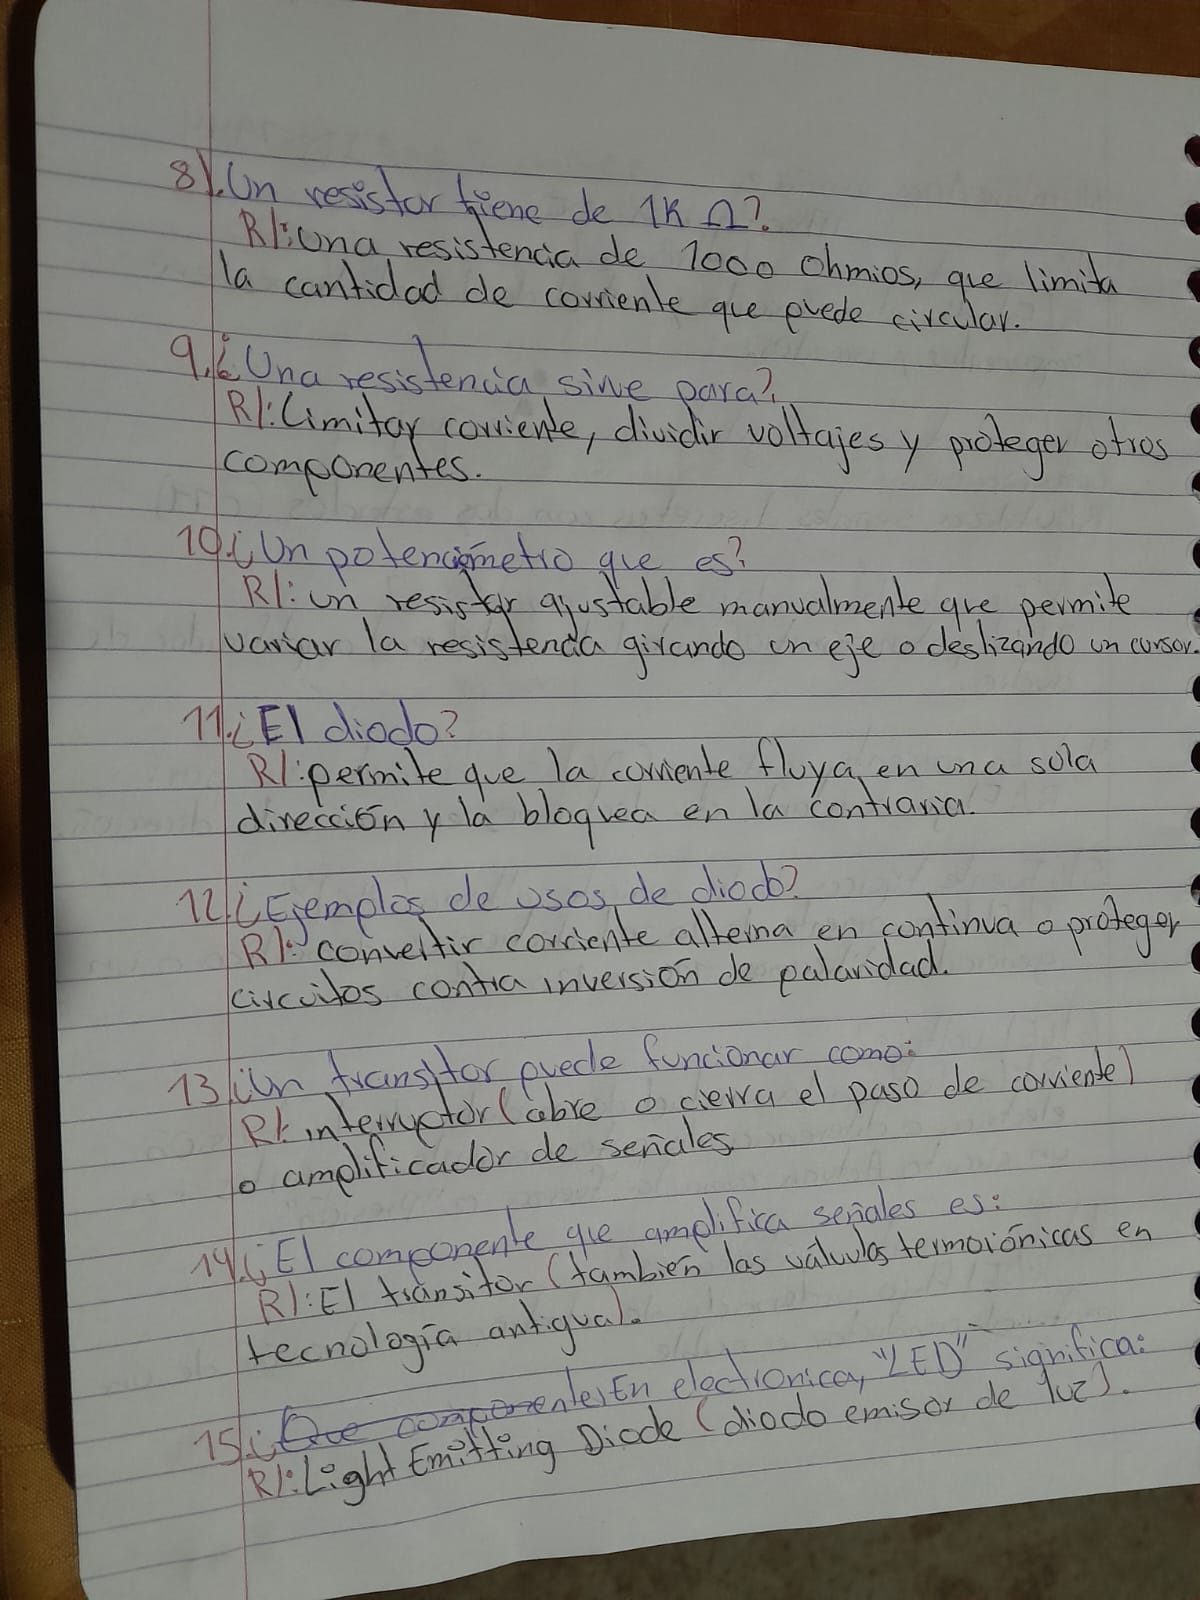 8). Un resistor tiene de 1K Ω?
R/: una resistencia de 1000 ohmios, que limita
la cantidad de corriente que puede circular.
9. ¿Una resistencia sirve para?
R/: Limitar corriente, dividir voltajes y proteger otros
componentes.
10. ¿Un potenciómetro que es?
R/: un resistor ajustable manualmente que permite
variar la resistencia girando un eje o deslizando un cursor.
11. ¿El diodo?
R/: permite que la corriente fluya en una sola
dirección y la bloquea en la contraria.
12. ¿Ejemplos de usos de diodo?
R/: convertir corriente alterna en continua o proteger
circuitos contra inversión de palaridad.
13. ¿Un transitor puede funcionar como:
R/: interruptor (abre o cierra el paso de corriente)
o amplificador de señales.
14. ¿El componente que amplifica señales es:
R/: El tránsitor (también las válvulas termoiónicas en
tecnología antigua).
15. ¿Que componentes En electronica, "LED" significa:
R/: Light Emitting Diode (diodo emisor de luz).